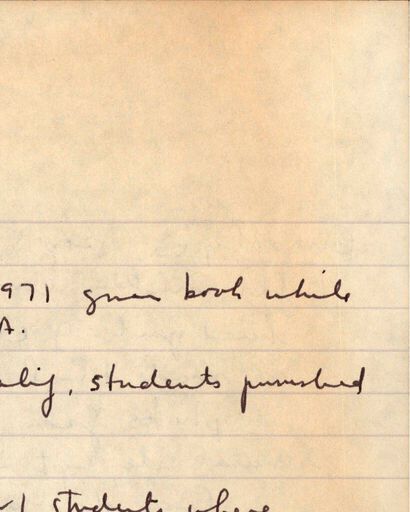 971 given book while
A.
alif, students punished
1 students where